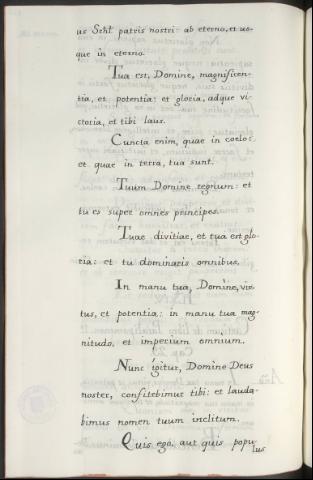 us Sëhl patris nostri: ab eterno, et us-
que in eterno.
Tua est, Domine, magnificen-
tia, et potentia: et gloria, adque vi-
ctoria, et tibi laus.
Cuncta enim, quae in coelo:
et quae in terra, tua sunt.
Tuum Domine regnum: et
tu es super omnes principes.
Tuae divitiae, et tua est glo-
ria: et tu dominaris omnibus.
In manu tua, Domine, vir-
tus, et potentia: in manu tua mag-
nitudo, et imperium omnium.
Nunc igitur, Domine Deus
noster, confitebimur tibi: et lauda-
bimus nomen tuum inclitum.
Quis ego, aut quis popu
lus